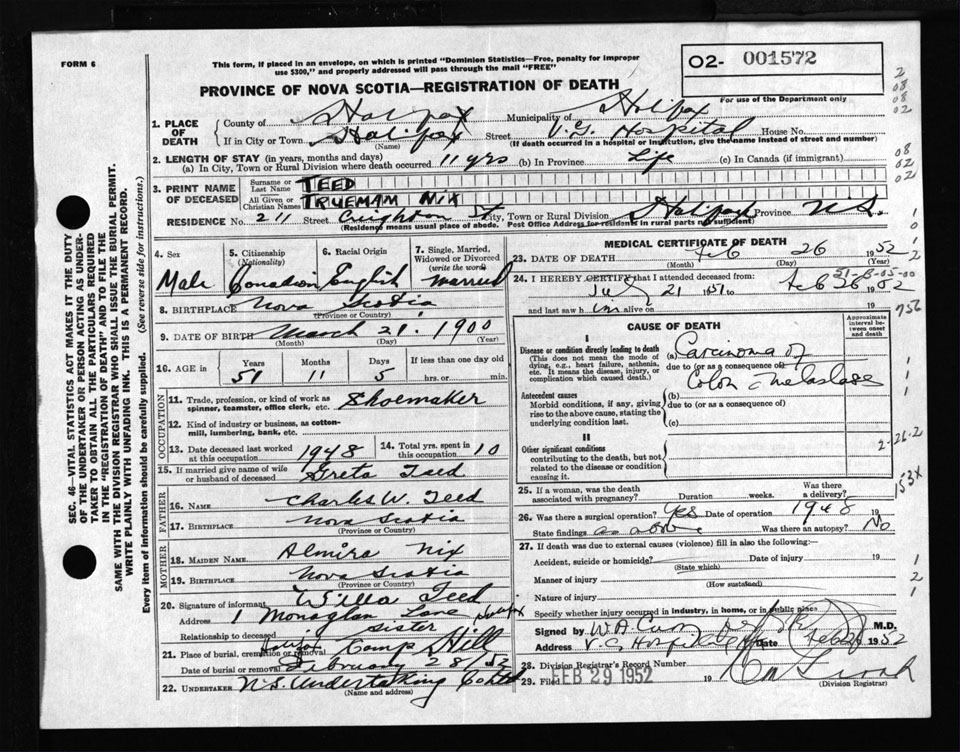 FORM 6
This form, if placed in an envelope, on which is printed "Dominion Statistics—Free, penalty for improper
use $300," and properly addressed will pass through the mail "FREE"
O2- 001572
For use of the Department only
PROVINCE OF NOVA SCOTIA—REGISTRATION OF DEATH
1. PLACE OF DEATH
County of Halifax Municipality of Halifax
If in City or Town Halifax Street V.G. Hospital House No.
(Name) (If death occurred in a hospital or institution, give the name instead of street and number)
2. LENGTH OF STAY (in years, months and days)
(a) In City, Town or Rural Division where death occurred 11 yrs (b) In Province Life (c) In Canada (if immigrant)
3. PRINT NAME OF DECEASED
Surname or Last Name TEED
All Given or Christian Names TRUEMAM NIX
RESIDENCE No. 211 Street Creighton St City, Town or Rural Division Halifax Province N.S.
(Residence means usual place of abode. Post Office Address for residence in rural parts not sufficient)
4. Sex Male
5. Citizenship (Nationality) Canadian
6. Racial Origin English
7. Single, Married, Widowed or Divorced (write the word) Married
8. BIRTHPLACE Nova Scotia
(Province or Country)
9. DATE OF BIRTH March 21 1900
(Month) (Day) (Year)
10. AGE in Years 51 Months 11 Days 5 If less than one day old hrs. or min.
OCCUPATION
11. Trade, profession, or kind of work as spinner, teamster, office clerk, etc. Shoemaker
12. Kind of industry or business, as cotton-mill, lumbering, bank, etc.
13. Date deceased last worked at this occupation 1948
14. Total yrs. spent in this occupation 10
15. If married give name of wife or husband of deceased Greta Teed
FATHER
16. NAME Charles W. Teed
17. BIRTHPLACE Nova Scotia
(Province or Country)
MOTHER
18. MAIDEN NAME Almira Nix
19. BIRTHPLACE Nova Scotia
(Province or Country)
20. Signature of informant Willa Teed
Address 1 Monaghan Lane Halifax
Relationship to deceased sister
21. Place of burial, cremation or removal Camp Hill
Date of burial or removal February 28/52
22. UNDERTAKER N.S. Undertaking
(Name and address)
MEDICAL CERTIFICATE OF DEATH
23. DATE OF DEATH Feb 26 1952
(Month) (Day) (Year)
24. I HEREBY CERTIFY that I attended deceased from:
21 1951 to Feb 26 1952
and last saw h im alive on 19
CAUSE OF DEATH
Approximate interval between onset and death
I
Disease or condition directly leading to death
(This does not mean the mode of dying, e.g., heart failure, asthenia, etc. It means the disease, injury, or complication which caused death.)
(a) Carcinoma of
due to (or as a consequence of)
Colon
Antecedent causes
Morbid conditions, if any, giving rise to the above cause, stating the underlying condition last.
(b)
due to (or as a consequence of)
(c)
II
Other significant conditions
contributing to the death, but not related to the disease or condition causing it.
2-26-2
153X
25. If a woman, was the death associated with pregnancy? Duration weeks. Was there a delivery?
26. Was there a surgical operation? Yes Date of operation 1948 19
State findings as above Was there an autopsy? No
27. If death was due to external causes (violence) fill in also the following:
Accident, suicide or homicide? Date of injury 19
(State which)
Manner of injury
(How sustained)
Nature of injury
Specify whether injury occurred in industry, in home, or in public place
Signed by M.D.
Address V.G. Hospital Date Feb 1952
28. Division Registrar's Record Number
29. Filed FEB 29 1952 19
(Division Registrar)
SEC. 46—VITAL STATISTICS ACT MAKES IT THE DUTY
OF THE UNDERTAKER OR PERSON ACTING AS UNDER-
TAKER TO OBTAIN ALL THE PARTICULARS REQUIRED
IN THE "REGISTRATION OF DEATH" AND TO FILE THE
SAME WITH THE DIVISION REGISTRAR WHO SHALL ISSUE THE BURIAL PERMIT.
WRITE PLAINLY WITH UNFADING INK. THIS IS A PERMANENT RECORD.
Every item of information should be carefully supplied. (See reverse side for instructions.)